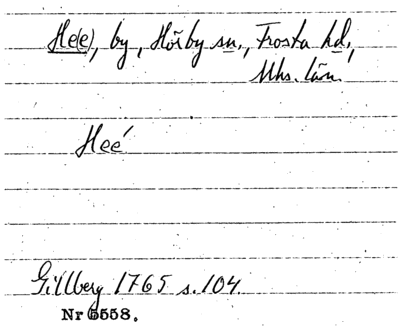 He(e), by, Hörby sn., Frosta hd.,
Mhs. län.
Heé
Gillberg 1765 s. 104.
Nr 6558.